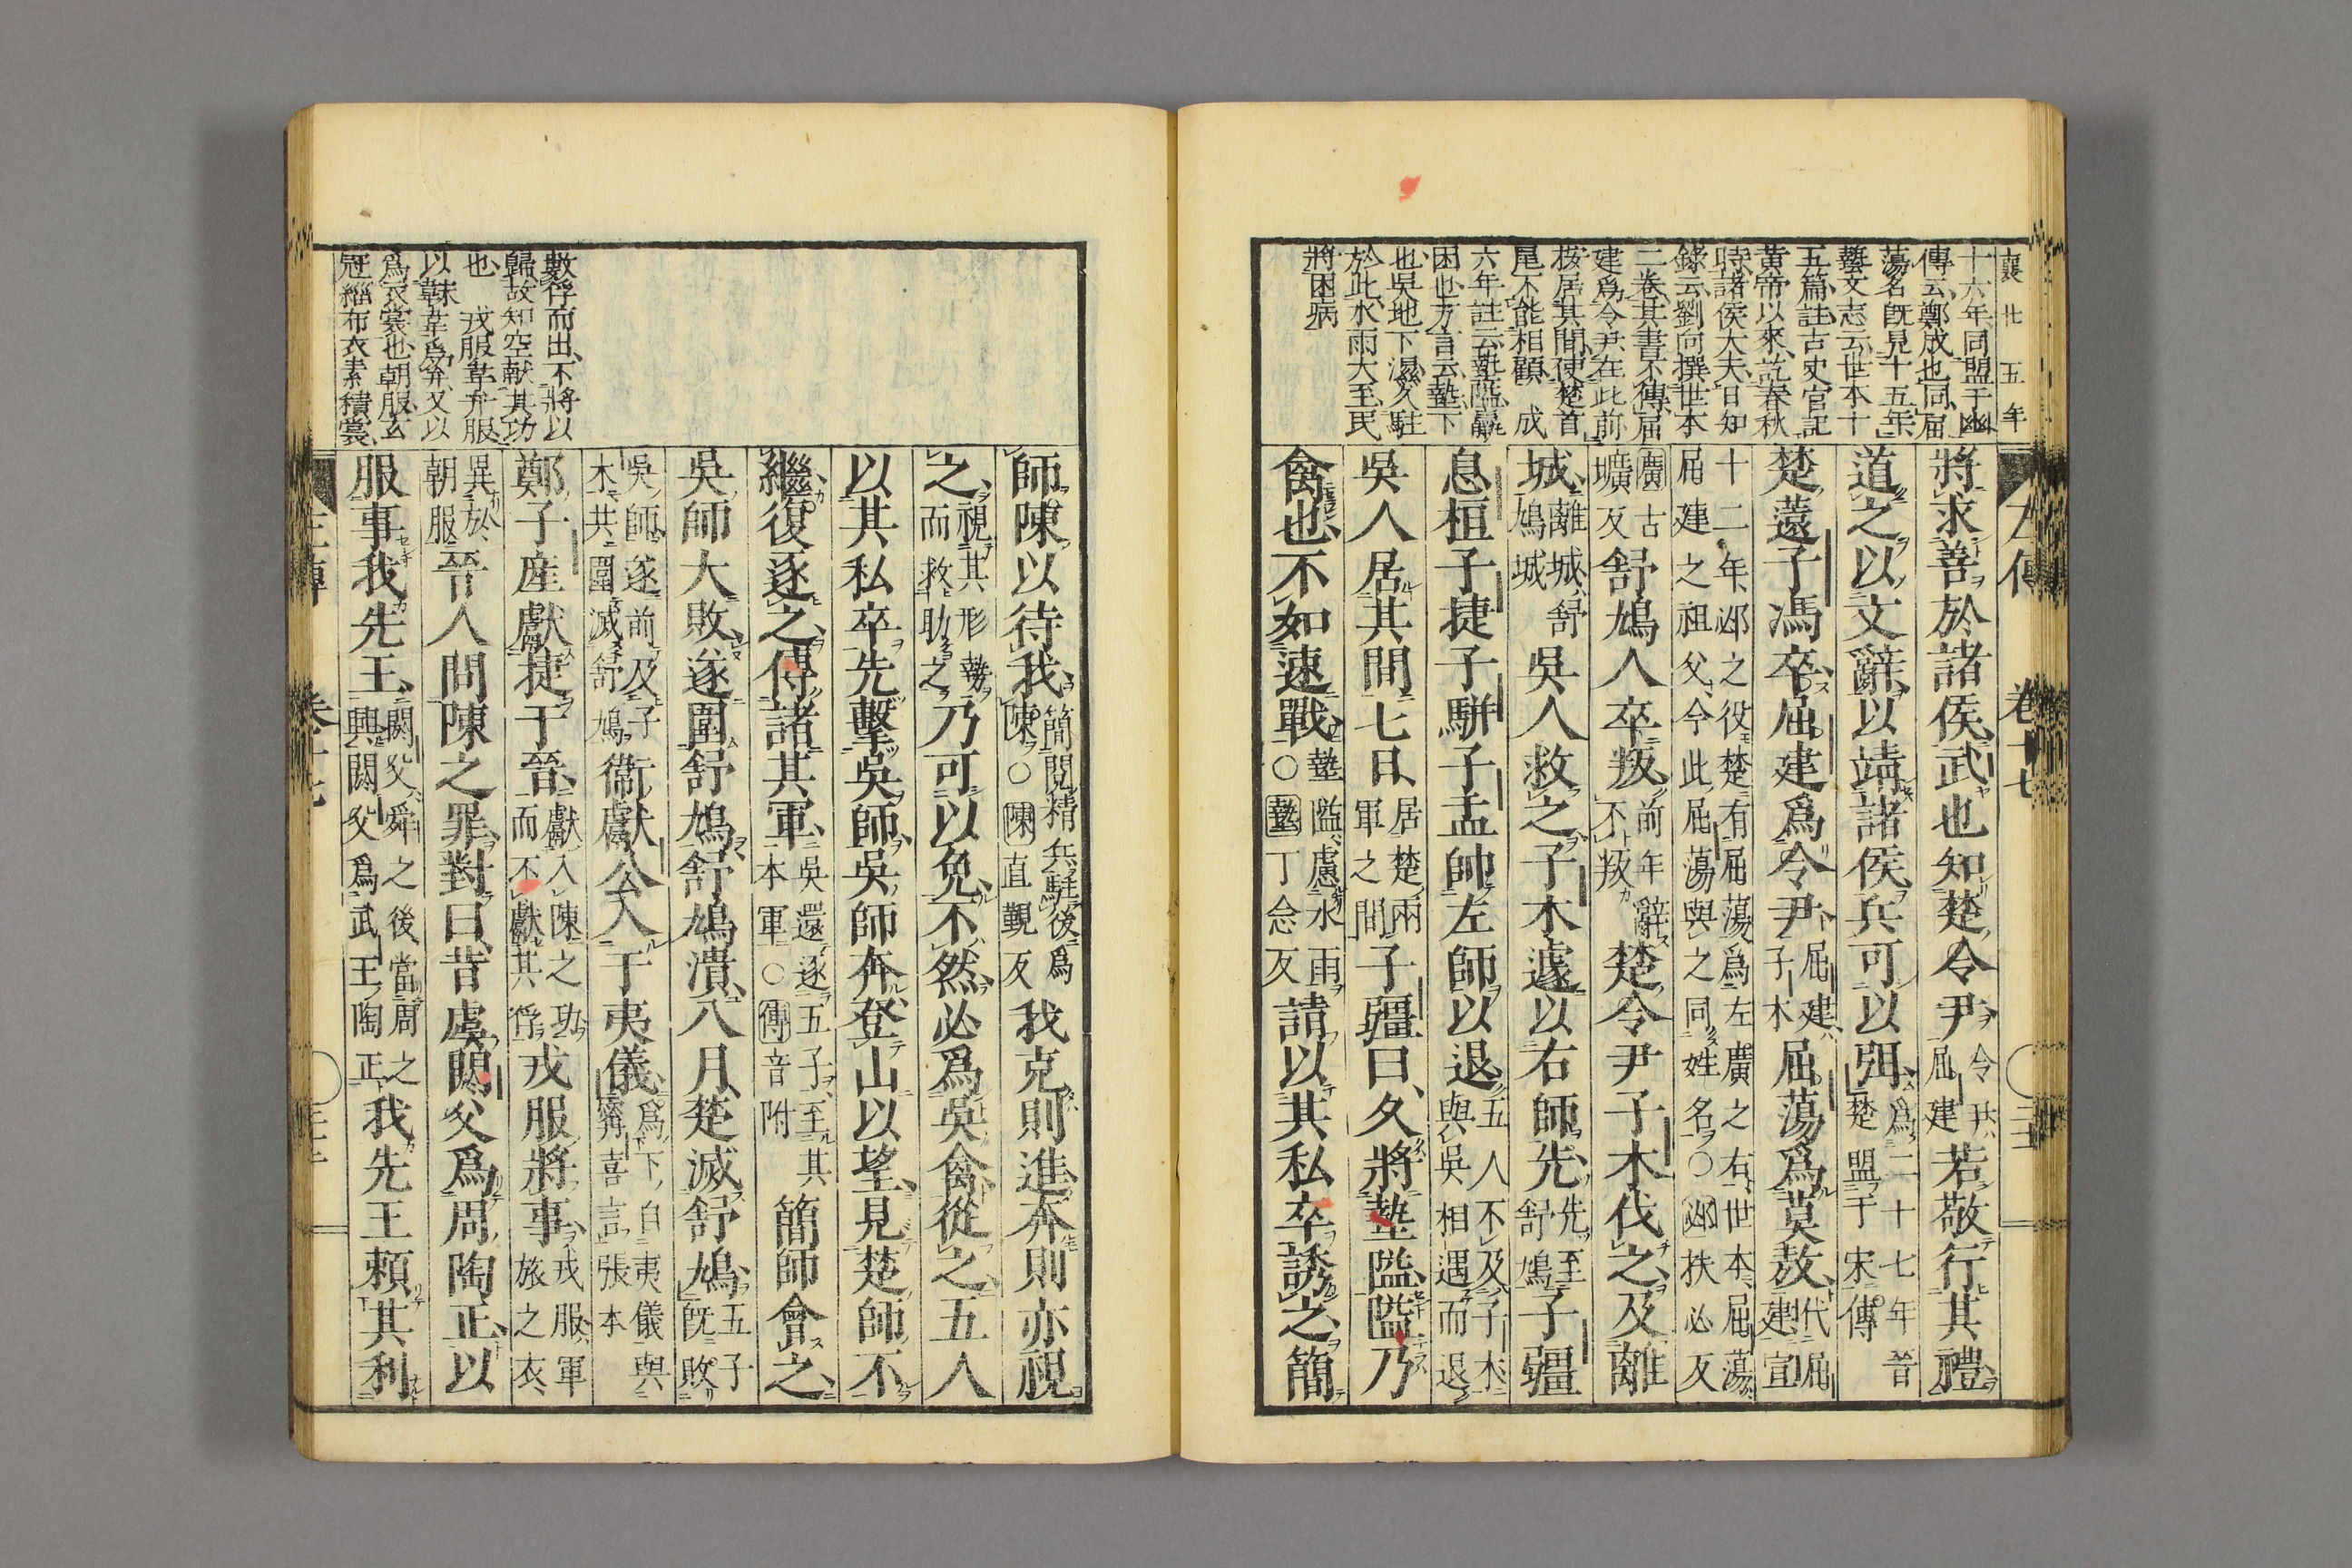 襄廿五年
十六年同盟于幽
傳云鄭成也同屈
蕩名既見十五年
藝文志云世本十
五篇註古史官記
黃帝以來訖春秋
時諸侯大夫日知
錄云劉向撰世本
二卷其書不傳屈
建爲令尹在此前
按居其間使楚首
尾不能相顧 成
六年註云墊隘羸
困也方言云墊下
也吳地下濕久駐
於此水雨大至民
將困病
左傳 卷十七
將求善於諸侯武也知楚令尹令尹屈建若敬行其禮
道之以文辭以靖諸侯兵可以弭爲二十七年晉楚盟于宋傳
楚薳子馮卒屈建爲令尹屈建子木屈蕩爲莫敖代屈建宣
十二年邲之役楚有屈蕩爲左廣之右世本屈蕩屈建之祖父今此屈蕩與之同姓名○邲扶必反
廣古壙反舒鳩人卒叛前年辭不叛楚令尹子木伐之及離
城離城舒鳩城吳人救之子木遽以右師先先至舒鳩子彊
息桓子捷子駢子孟帥左師以退五人不及子木與吳相遇而退
吳人居其間七日居楚兩軍之間子彊曰久將墊隘隘乃
禽也不如速戰墊隘慮水雨○墊丁念反請以其私卒誘之簡
師陳以待我簡閱精兵駐後爲陳○陳直覲反我克則進奔則亦視
之視其形勢而救助之乃可以免不然必爲吳禽從之五人
以其私卒先擊吳師吳師奔登山以望見楚師不
繼復逐之傅諸其軍吳還逐五子至其本軍○傅音附簡師會之
吳師大敗遂圍舒鳩舒鳩潰八月楚滅舒鳩五子既敗
吳師遂前及子木共圍滅舒鳩衞獻公入于夷儀爲下自夷儀與甯喜言張本
鄭子產獻捷于晉獻入陳之功而不獻其俘戎服將事戎服軍旅之衣
異於朝服晉人問陳之罪對曰昔虞閼父爲周陶正以
服事我先王閼父舜之後當周之興閼父爲武王陶正我先王賴其利
數俘而出不將以
歸故知空獻其功
也 戎服韋弁服
以韎韋爲弁又以
爲衣裳也朝服玄
冠緇布衣素積裳